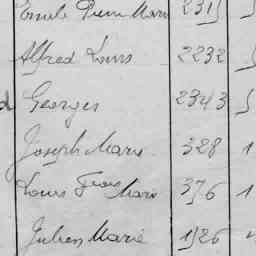 Emile Pierre Marie 2315
Alfred Louis 2232
Georges 2343
Joseph Marie 328 1
Louis Franç Marie 376 1
Julien Marie 1526